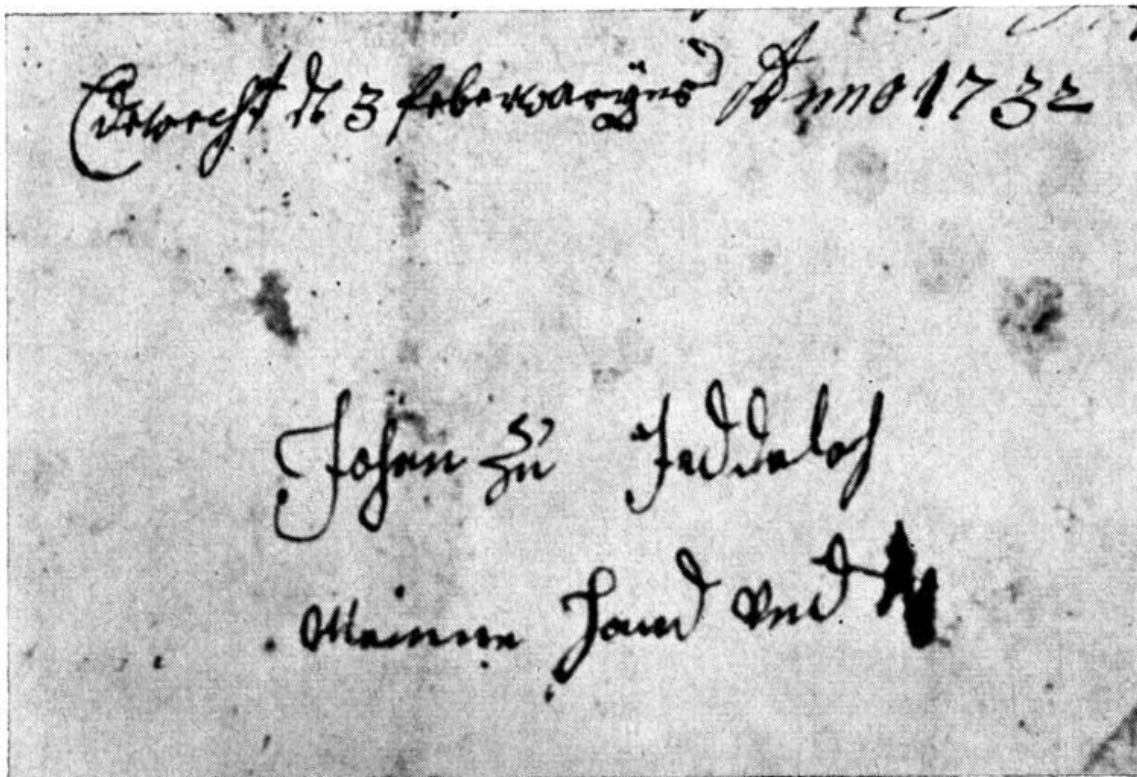 Edewecht d 3 feberwaryus Anno 1732
Johen zu Jeddeloh
Meinne Hand vnd